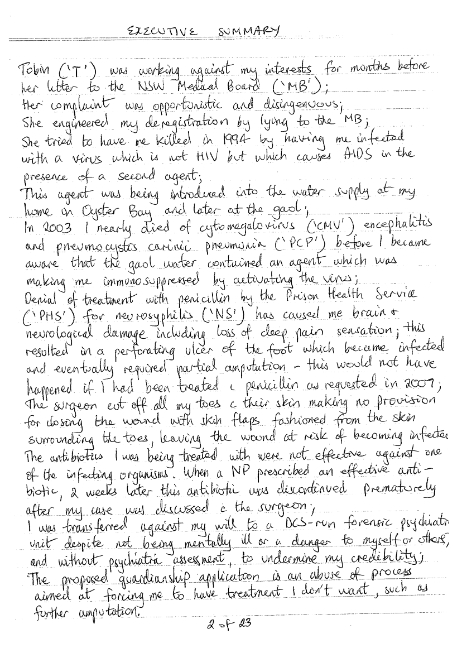 EXECUTIVE SUMMARY
Tobin ('T') was working against my interests for months before
her letter to the NSW Medical Board ('MB');
Her complaint was opportunistic and disingenuous;
She engineered my deregistration by lying to the MB;
She tried to have me killed in 1994 by having me infected
with a virus which is not HIV but which causes AIDS in the
presence of a second agent;
This agent was being introduced into the water supply at my
home in Oyster Bay and later at the gaol;
In 2003 I nearly died of cytomegalovirus ('CMV') encephalitis
and pneumocystis carinii pneumonia ('PCP') before I became
aware that the gaol water contained an agent which was
making me immunosuppressed by activating the virus;
Denial of treatment with penicillin by the Prison Health Service
('PHS') for neurosyphilis ('NS') has caused me brain &
neurological damage including loss of deep pain sensation; this
resulted in a perforating ulcer of the foot which became infected
and eventually required partial amputation - this would not have
happened if I had been treated c penicillin as requested in 2007;
The surgeon cut off all my toes c their skin making no provision
for closing the wound with skin flaps fashioned from the skin
surrounding the toes, leaving the wound at risk of becoming infected
The antibiotics I was being treated with were not effective against one
of the infecting organisms. When a NP prescribed an effective anti-
biotic, 2 weeks later this antibiotic was discontinued prematurely
after my case was discussed c the surgeon;
I was transferred against my will to a DCS-run forensic psychiatri
unit despite not being mentally ill or a danger to myself or others,
and without psychiatric assessment, to undermine my credibility;
The proposed guardianship application is an abuse of process
aimed at forcing me to have treatment I don't want, such as
further amputation.
2 of 23